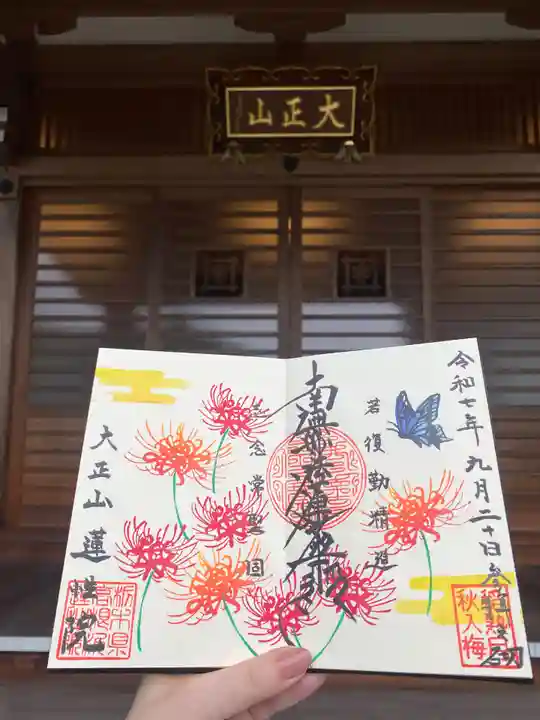 大正山
令和七年九月二十日参拝
若復勤精進
南無妙法蓮華経
志念常堅固
大正山蓮性院
秋入梅
栃木県